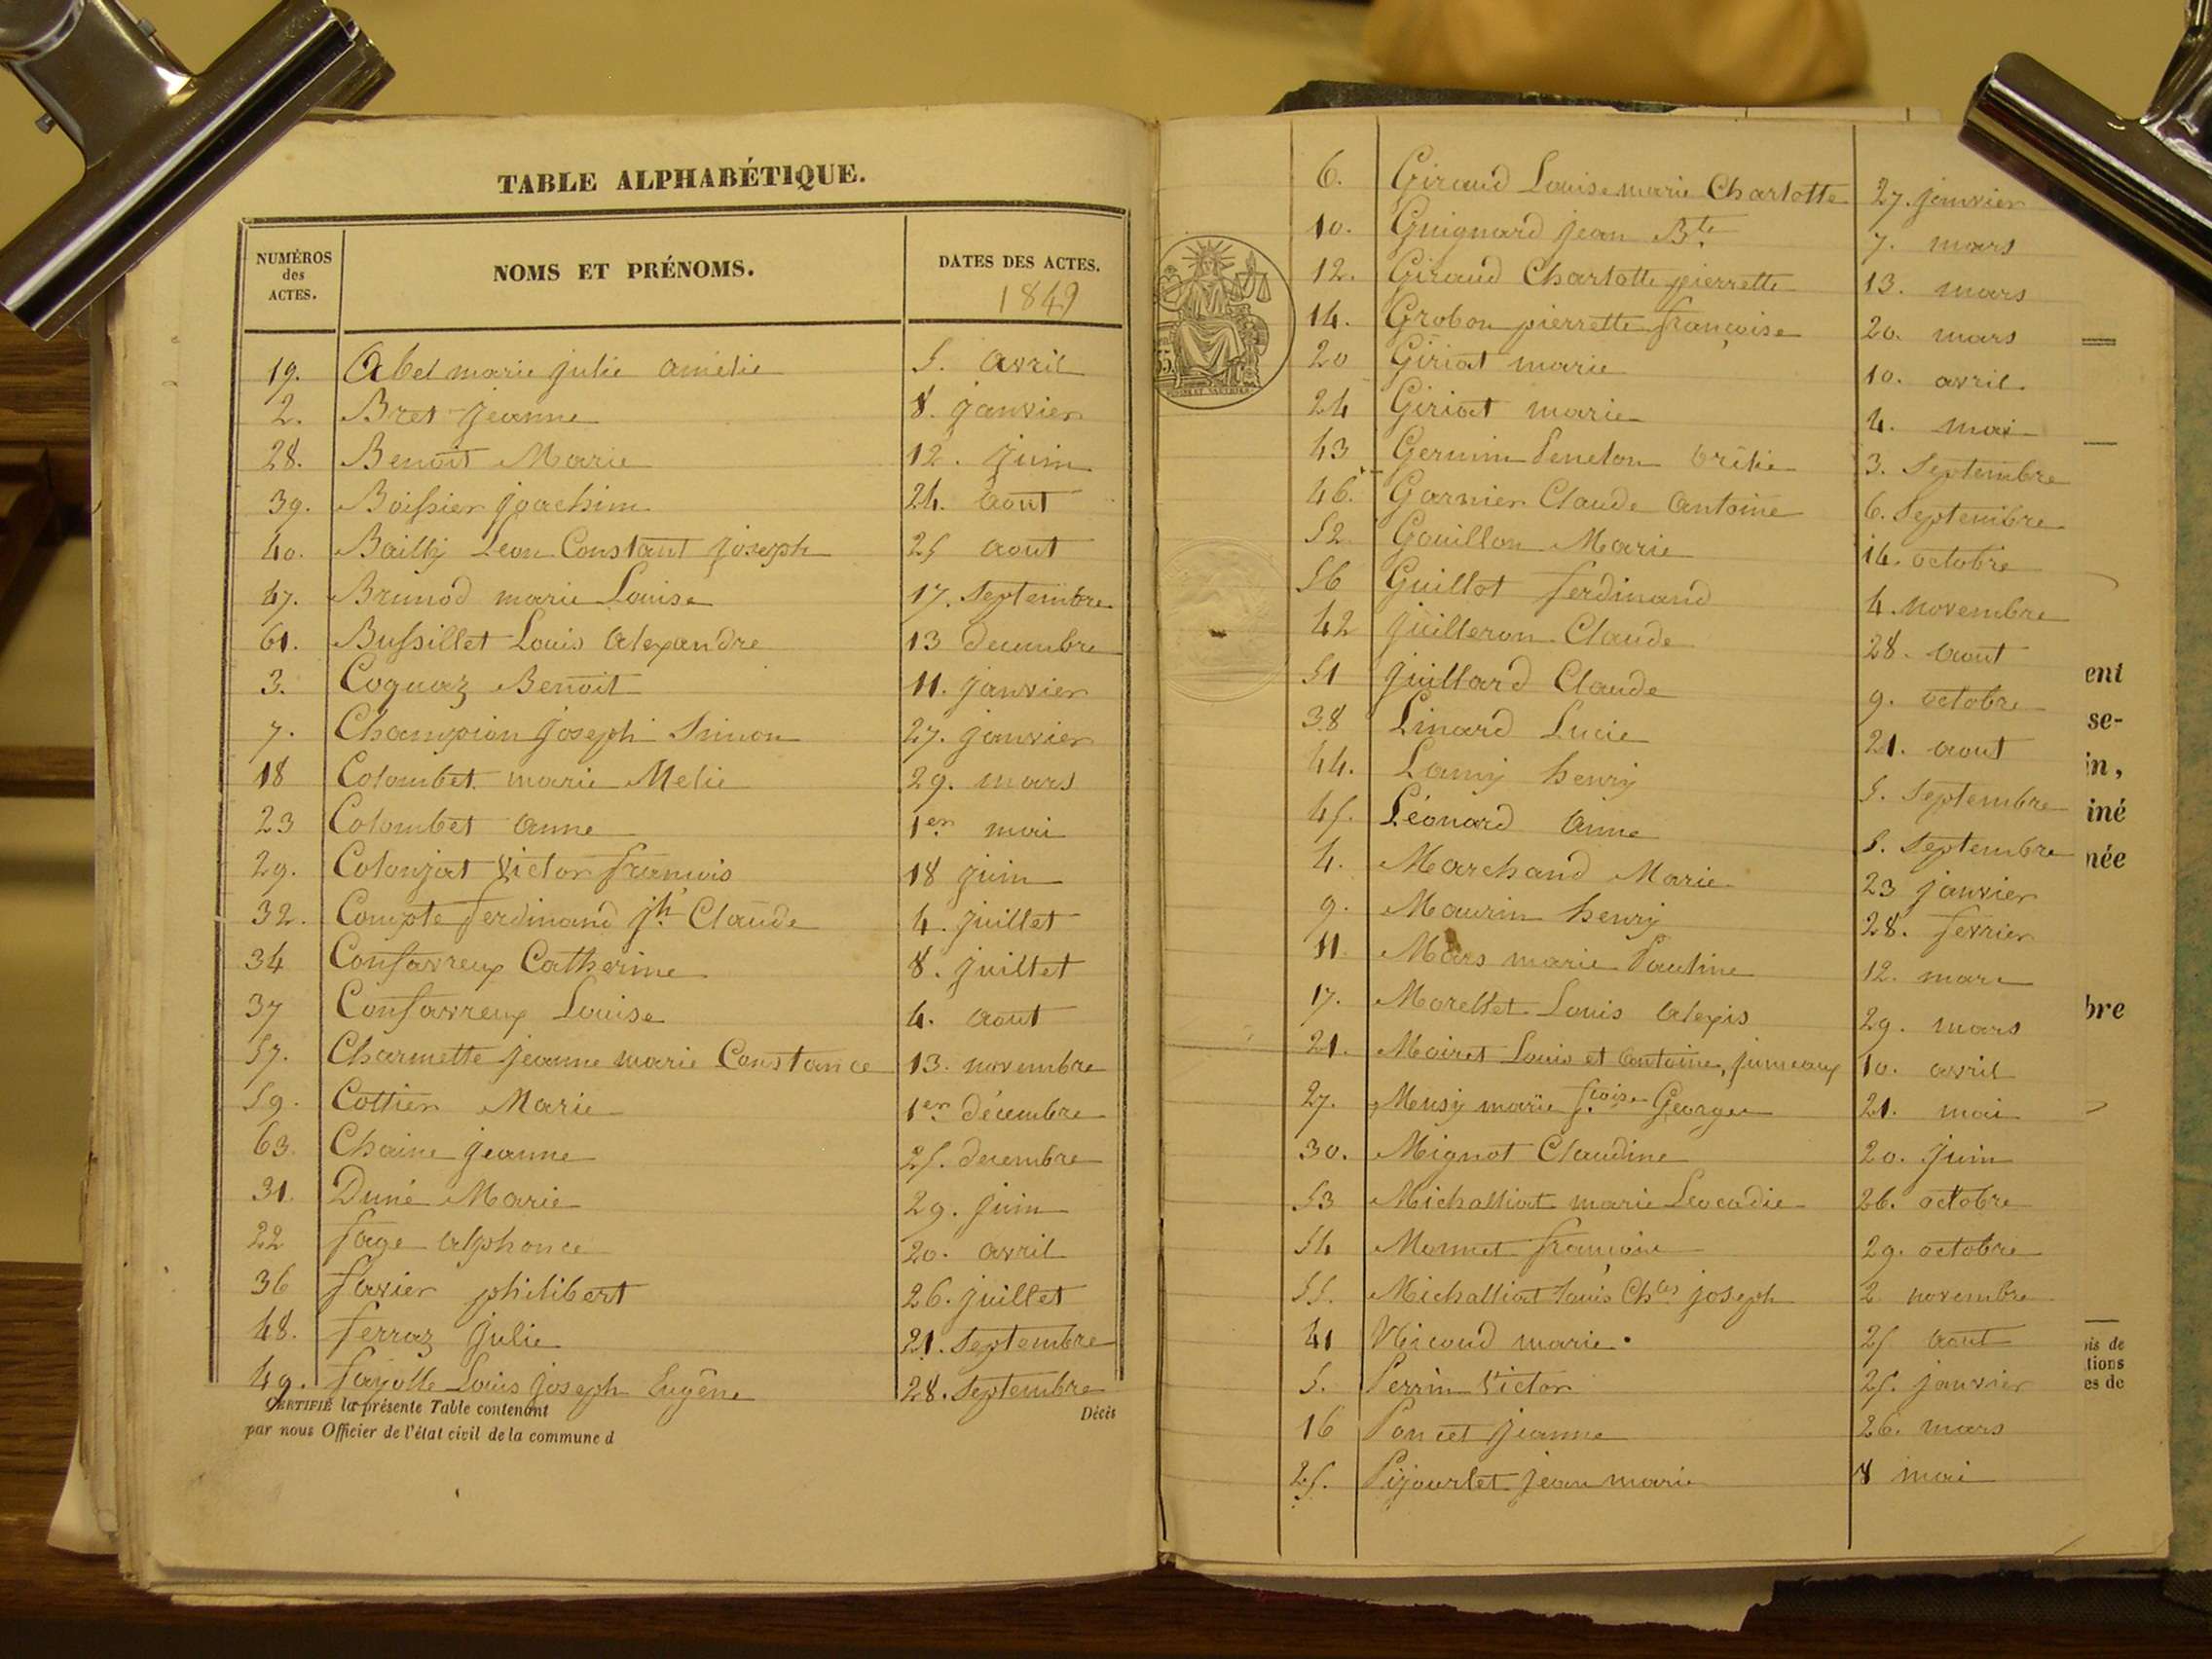 TABLE ALPHABÉTIQUE.
NUMÉROS des ACTES. NOMS ET PRÉNOMS. DATES DES ACTES.
1849
19. Abel marie julie amélie 5. avril
2. Bret jeanne 8. janvier
28. Benoit Marie 12. juin
39. Boissier joachim 24. aout
40. Bailly Léon Constant joseph 25 aout
47. Brunod marie Louise 17. Septembre
61. Bussillet Louis alexandre 13 decembre
3. Coquaz Benoit 11. janvier
7. Champion joseph Simon 27. janvier
18 Colombet marie Melie 29. mars
23 Colombet anne 1er mai
29. Colonjat Victor francois 18 juin
32. Compte ferdinand jh Claude 4. juillet
34 Confavreux Catherine 8. juillet
37 Confavreux Louise 4. aout
57. Charmette jeanne marie Constance 13. novembre
59. Cottier Marie 1er décembre
63. Chaine jeanne 25. decembre
31. Duné Marie 29. juin
22 fage alphonce 20. avril
36 favier philibert 26. juillet
48. ferraz julie 21. Septembre
49. fayolle Louis joseph Eugêne 28. Septembre
CERTIFIÉ la présente Table contenant Décès
par nous Officier de l'état civil de la commune d
6. Giraud Louise marie Charlotte 27. janvier
10. Guignard jean Bte 7. mars
12. Giraud Charlotte pierrette 13. mars
14. Grobon pierrette françoise 20. mars
20 Giriat marie 10. avril
24 Giriat marie 4. mai
43 3. Septembre
46. Garnier Claude antoine 6. Septembre
52. Gouillon Marie 14. octobre
56 Guillot ferdinand 4. novembre
42 juilleron Claude 28. aout
51 juillard Claude 9. octobre
38 Linard Lucie 21. aout
44. Lamy henry 5. Septembre
45. Léonard anne 5. Septembre
4. Marchand Marie 23 janvier
9. Maurin henry 28. fevrier
11. Mars marie Pauline 12. mars
17. Morellet Louis alexis 29. mars
21. Moiret Louis et antoine, jumeaux 10. avril
27. marie foise George 21. mai
30. Mignot Claudine 20. juin
53 Michalliat marie Leocadie 26. octobre
54 Monnet francoise 29. octobre
55. Michalliat Louis Chles joseph 2 novembre
41 Nicoud marie. 25 aout
5. Perrin Victor 25. janvier
16 Poncet jeanne 26. mars
25. Pijourlet jean marie 8 mai
ent
se-
in,
iné
née
bre
is de
tions
es de